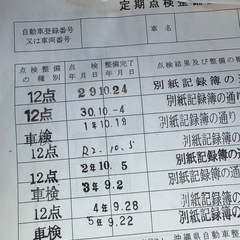 定期点検整
自動車登録番号
又は車両番号
車名
点検整備
の種別
点検整備完了
年月日 年月日
点検の結果及び整備の概
12点 29 10.24 別紙記録簿の通
12点 30.10.-4 別紙記録簿の通り
車検 1年10.1 別紙記録簿の通り
12点 R2.10.5 別紙記録簿の通
車検 2年10.5 別紙記録簿の通
車検 3年9.2 別紙記録簿の通
12点 4年9.28 別紙記録簿の通
車検 5年9.22 別紙記録簿の通
沖縄県自動車整